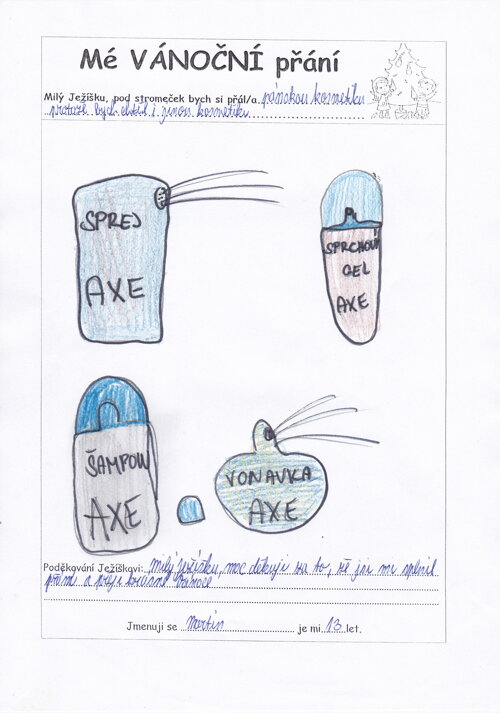 Mé VÁNOČNÍ přání
Milý Ježíšku, pod stromeček bych si přál/a pánskou kosmetiku
protože bych chtěl i jinou kosmetiku
SPREJ
AXE
SPRCHOVÝ
GEL
AXE
ŠAMPON
AXE
VONAVKA
AXE
Poděkování Ježíškovi: milý ježíšku, moc děkuji za to, že jsi mi splnil
přání a přeji krásné Vánoce
Jmenuji se Martin je mi 13 let.